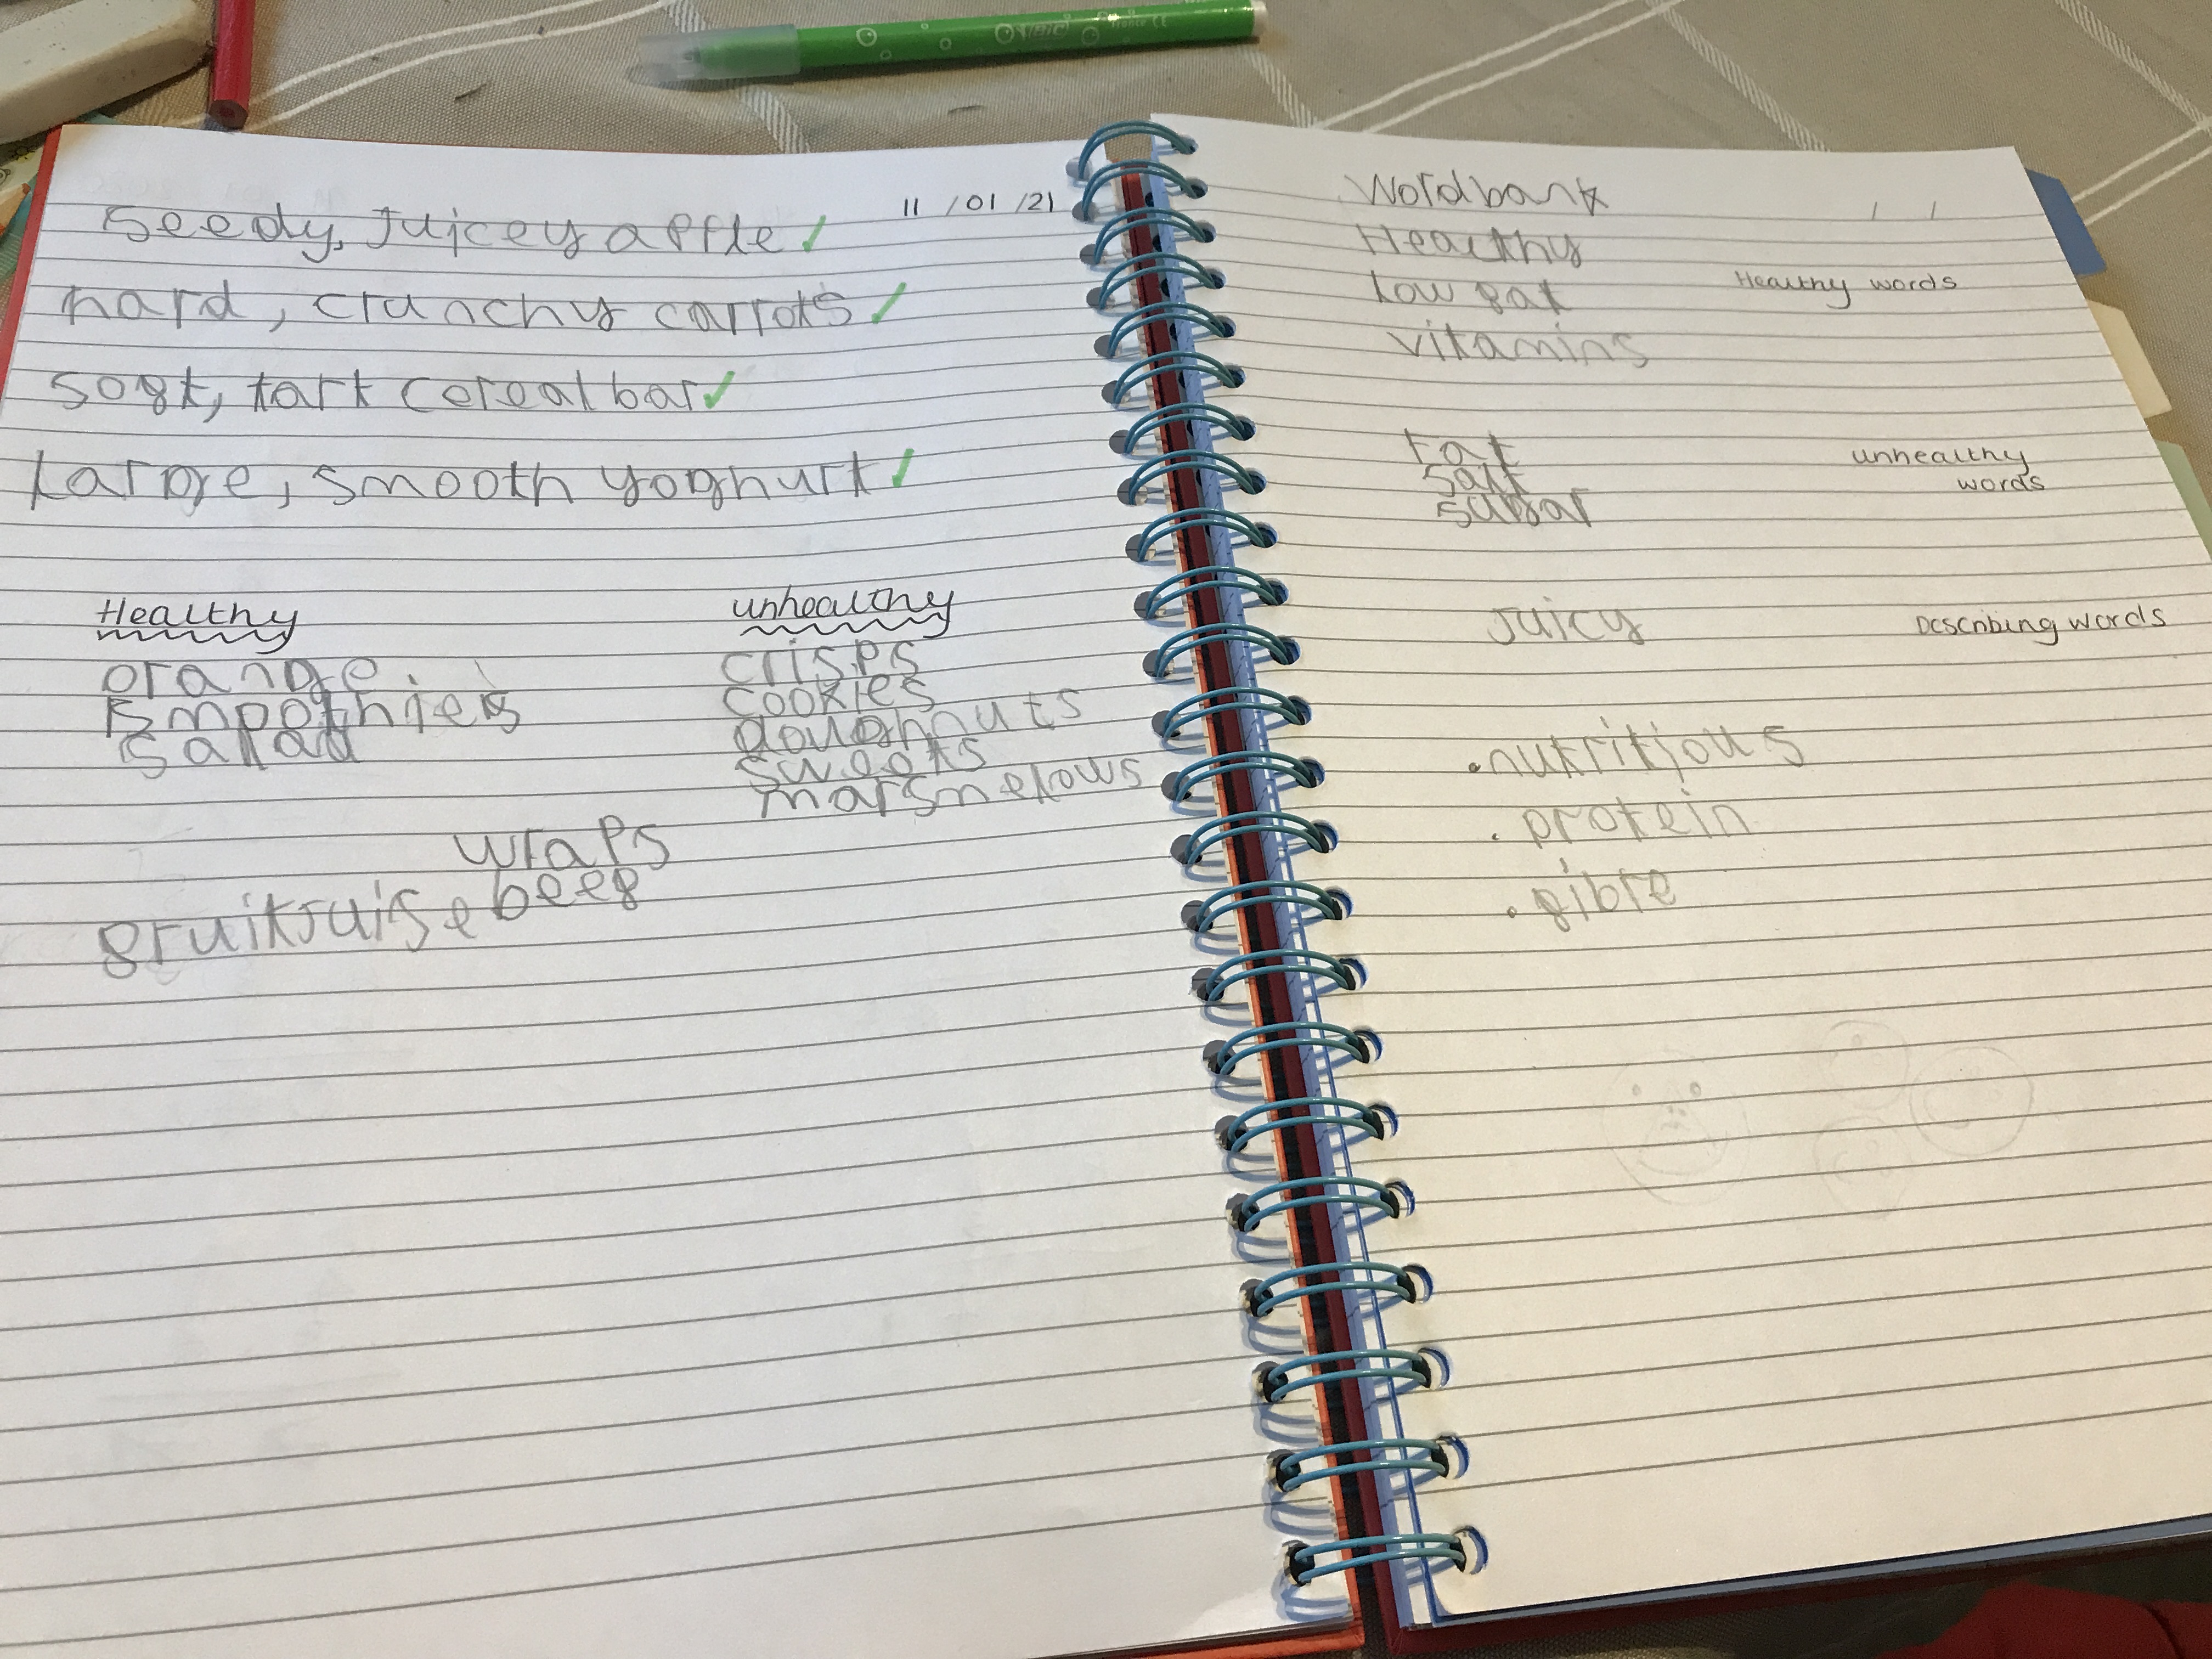 BIC
France CE
11 /01 /21
seedy, Juicey apple ✓
hard, crunchy carrots ✓
soft, tart cereal bar ✓
Large, smooth yoghurt ✓
Healthy
orange
smoothies
salad
unhealthy
crisps
cookies
doughnuts
sweets
marsmelows
wraps
beef
fruitjuise
Wordbank
/ /
Healthy
Low fat
Healthy words
vitamins
fat
salt
sugar
unhealthy
words
Juicy
Describing words
• nutritious
• protein
• fibre